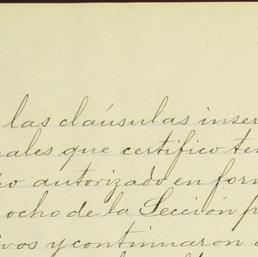 las cláusulas inser
ales que certifico ten
o autorizado en form
ocho de la Sección p
ivos y continuaron a